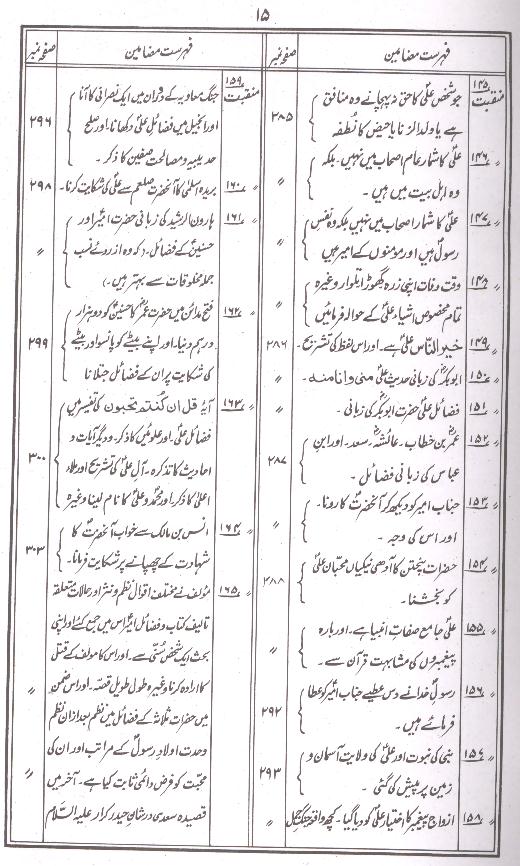 ۱۵
فہرست مضامین
صفحہ نمبر
منقبت ۱۴۵
جو شخص علیؑ کا حق نہ پہچانے وہ منافق
ہے یا ولد الزنا یا حیض کا نطفہ
۲۸۵
۱۴۶
علیؑ کا شمار عام اصحاب میں نہیں۔ بلکہ
وہ اہل بیت میں ہیں۔
〃
۱۴۷
علیؑ کا شمار اصحاب میں نہیں بلکہ وہ نفس
رسولؐ ہیں اور مومنوں کے امیر ہیں
〃
۱۴۸
وقت وفات اپنی زرہ گھوڑا تلوار وغیرہ
تمام مخصوص اشیاء علیؑ کے حوالہ فرمائیں
〃
۱۴۹
خیر الناس علیؑ ہے۔ اور اس لفظ کی تشریح۔
۲۸۶
۱۵۰
ابوبکرؓ کی زبانی حدیث علیؑ منی وانا منہ۔
〃
۱۵۱
فضائل علیؑ حضرت ابوبکرؓ کی زبانی۔
〃
۱۵۲
عمرؓ بن خطاب۔ عائشہؓ۔ سعد۔ اور ابن
عباس کی زبانی فضائل۔
۲۸۷
۱۵۳
جناب امیر کو دیکھ کر آنحضرتؐ کا رونا۔
اور اس کی وجہ۔
〃
۱۵۴
حضرات پنجتن کا آدھی نیکیاں محبّان علیؑ
کو بخشنا۔
۲۸۸
۱۵۵
علیؑ جامع صفات انبیا ہے۔ اور بارہ
پیغمبروں کی مشابہت قرآن سے۔
〃
۱۵۶
رسولؐ خدا نے دس عطیے جناب امیرؑ کو عطا
فرمائے ہیں۔
۲۹۲
۱۵۷
نبی کی نبوت اور علیؑ کی ولایت آسمان و
زمین پر پیش کی گئی۔
۲۹۳
۱۵۸
ازواج پیغمبر کا اختیار علیؑ کو دیا گیا۔ کچھ واقعہ جنگ جمل
〃
فہرست مضامین
صفحہ نمبر
منقبت ۱۵۹
جنگ معاویہ کے دوران میں ایک نصرانی کا آنا
اور انجیل میں فضائل علیؑ دکھانا۔ اور صلح
حدیبیہ و مصالحت صفین کا ذکر۔
۲۹۶
۱۶۰
بریدہ اسلمی کا آنحضرت صلعم سے علیؑ کی شکایت کرنا۔
۲۹۸
۱۶۱
ہارون الرشید کی زبانی حضرت امیرؑ اور
حسنینؑ کے فضائل۔ (کہ وہ از روئے نسب
جملہ مخلوقات سے بہتر ہیں۔)
〃
۱۶۲
فتح مدائن میں حضرت عمرؓ کا حسنینؑ کو دو ہزار
درہم دینا۔ اور اپنے بیٹے کو پانسو اور بیٹے
کی شکایت پر ان کے فضائل جتلانا
۲۹۹
۱۶۳
آیہ قل ان کنتم تحبون کی تفسیر میں
فضائل علیؑ۔ اور علویین کا ذکر۔ و دیگر آیات و
احادیث کا تذکرہ۔ آل علیؑ کی تشریح اور ملاء
اعلیٰ کا ذکر اور محمدؐ و علیؑ کا نام لینا وغیرہ
۳۰۰
۱۶۴
انس بن مالک سے خواب آنحضرتؐ کا
شہادت کے چھپانے پر شکایت فرمانا۔
۳۰۳
۱۶۵
مولف نے مختلف اقوال نظم و نثر اور حالات متعلقہ
تالیف کتاب و فضائل امیرؑ اس میں جمع کئے اور اپنی
بحث ایک شخص سُنّی سے۔ اور اس کا مولف کے قتل
کا ارادہ کرنا وغیرہ طول طویل قصہ۔ اور اس ضمن
میں حضرت ثلاثہ کے فضائل میں نظم بعد ازاں نظم
وحدت اولاد رسولؐ کے مراتب اور ان کی
محبت کو فرض دائمی ثابت کیا ہے۔ آخر میں
قصیدہ سعدی در شان حیدر کرار علیہ السلام
〃
〃